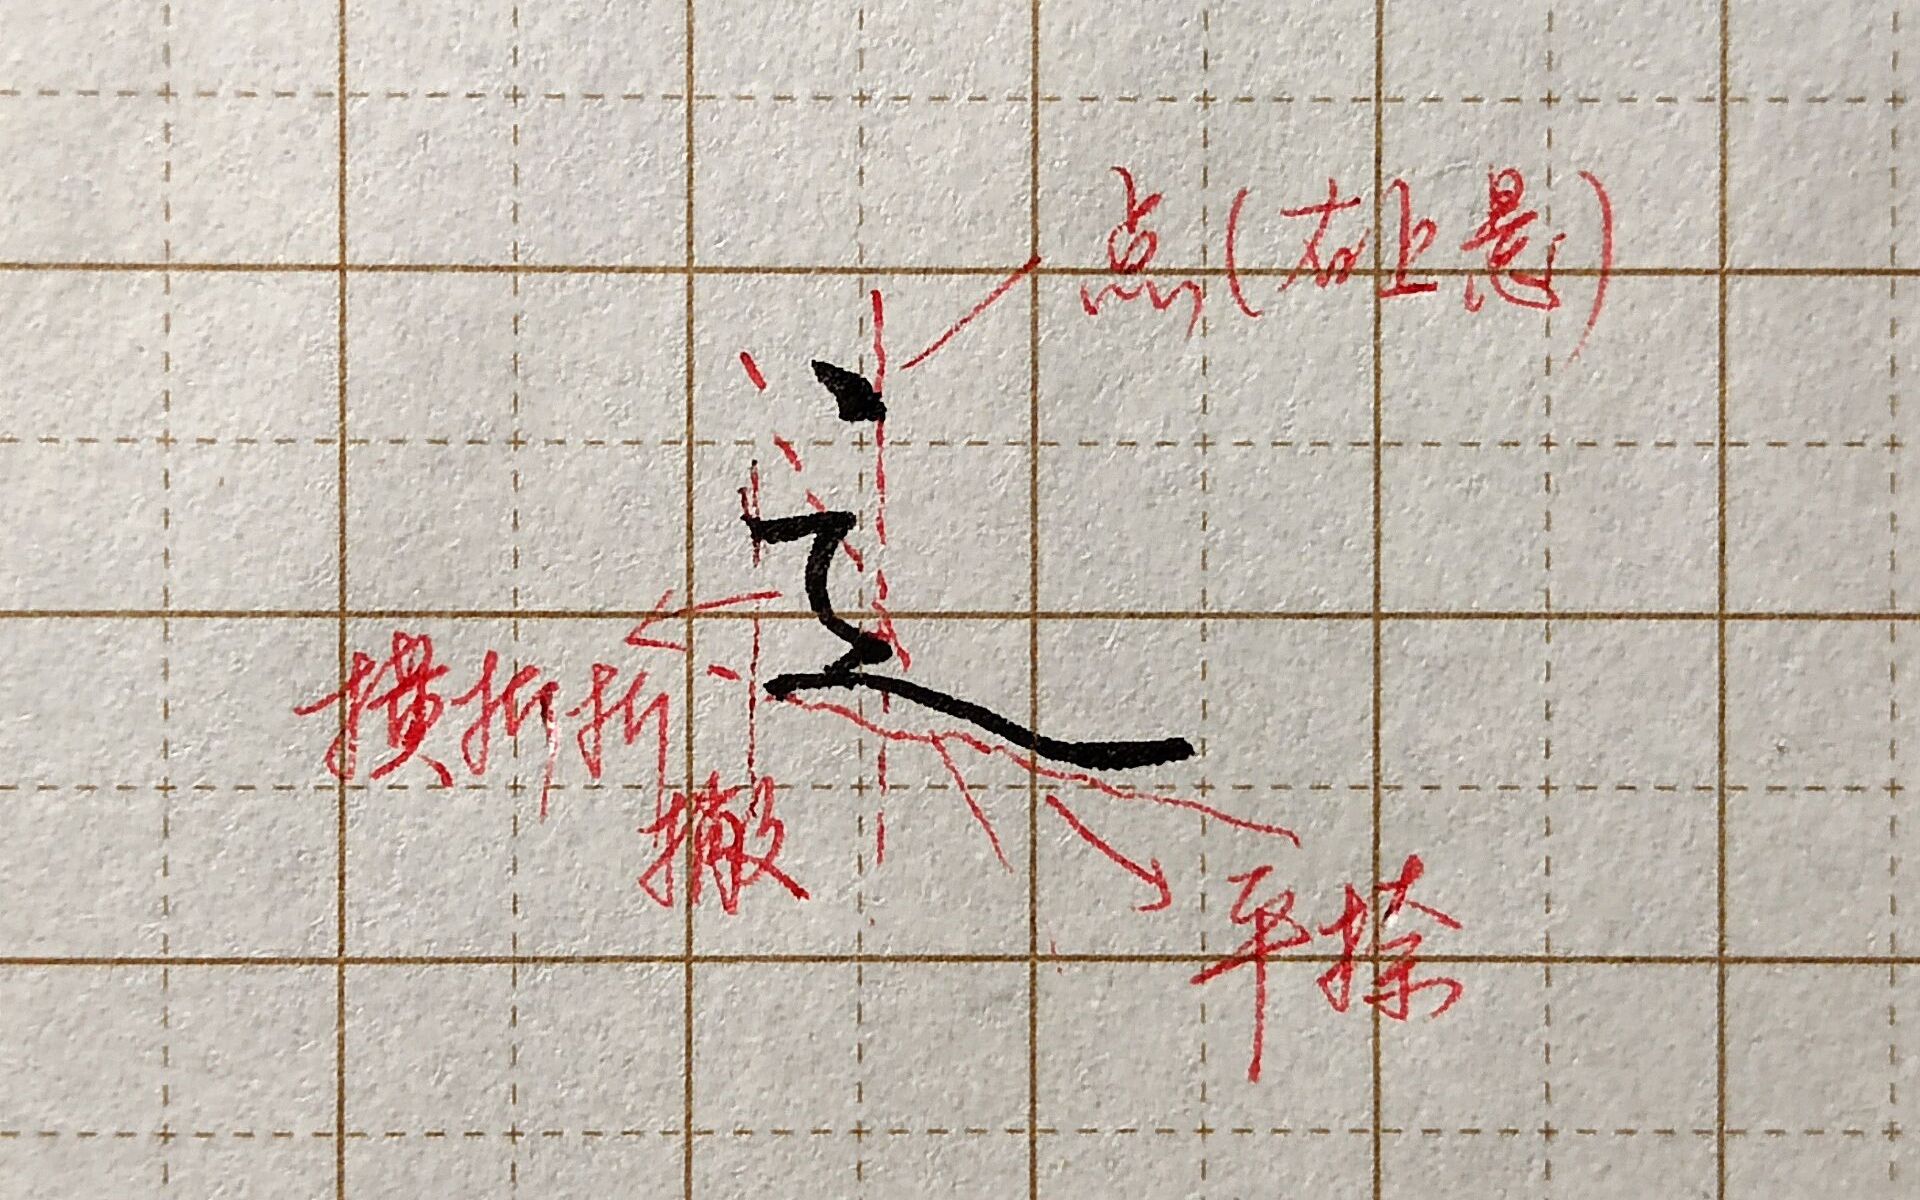 点(右上悬)
辶
横折折
撇
平捺